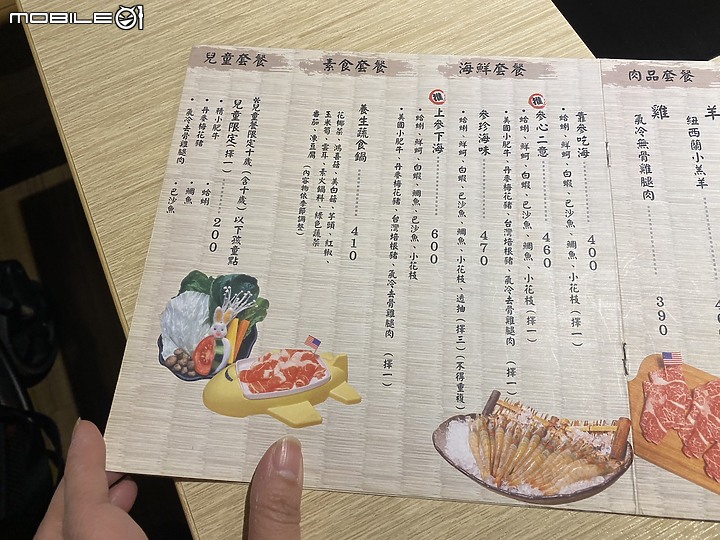 MOBILE01
肉品套餐
羊
紐西蘭小羔羊
雞
氣冷無骨雞腿肉
390
海鮮套餐
靠參吃海 400
•蛤蜊、鮮蚵、白蝦、巴沙魚、鯛魚、小花枝(擇一)
推 參心二意 460
•蛤蜊、鮮蚵、白蝦、巴沙魚、鯛魚、小花枝(擇一)
•美國小肥牛、丹麥梅花豬、台灣培根豬、氣冷去骨雞腿肉(擇一)
參珍海味 470
•蛤蜊、鮮蚵、白蝦、巴沙魚、鯛魚、小花枝、透抽(擇三)(不得重複)
推 上參下海 600
•蛤蜊、鮮蚵、白蝦、巴沙魚、鯛魚、小花枝
•美國小肥牛、丹麥梅花豬、台灣培根豬、氣冷去骨雞腿肉(擇一)
素食套餐
養生蔬食鍋 410
花椰菜、鴻喜菇、美白菇、芋頭、紅椒、
玉米筍、雲耳、素火鍋料、綠色蔬菜
番茄、凍豆腐(內容物依季節調整)
兒童套餐
於兒童餐限定十歲(含十歲)以下孩童點
兒童限定(擇一) 200
•精小肥牛 •蛤蜊
•丹麥梅花豬 •鯛魚
•氣冷去骨雞腿肉 •巴沙魚